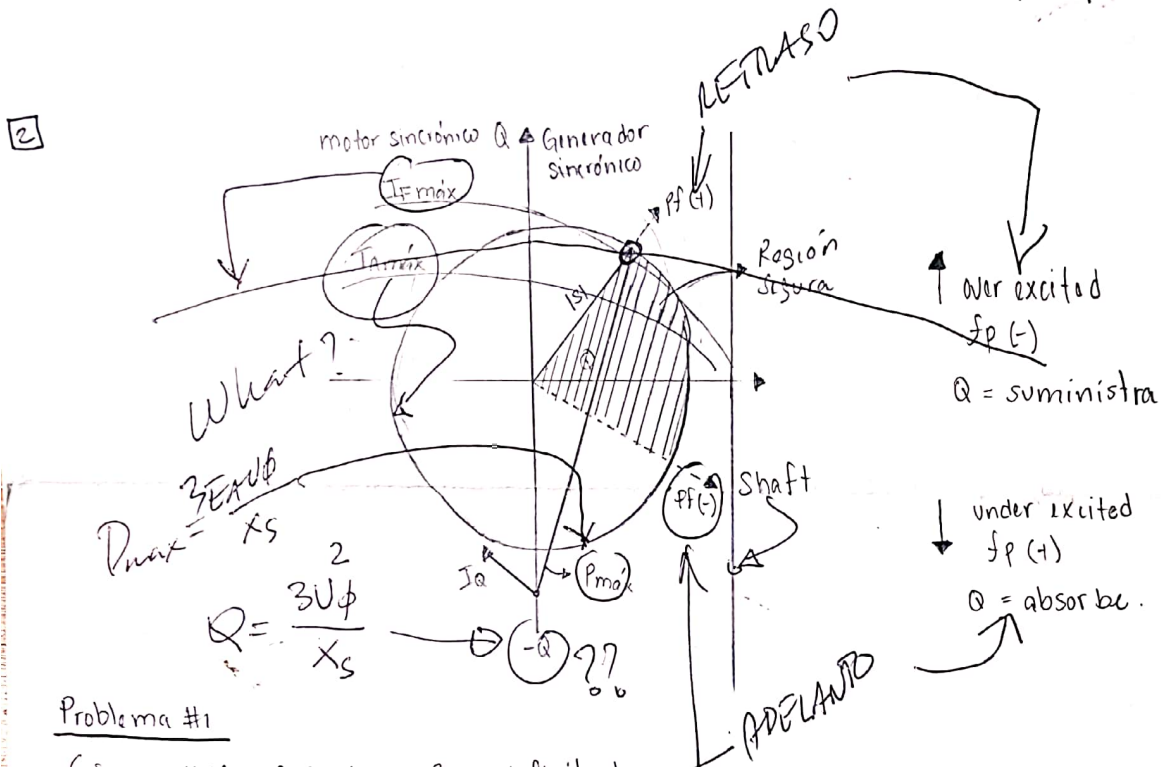 RETRASO
2
motor sincrónico Q Generador
sincrónico
IFmáx
Pf (+)
IAmáx
Región
Sigura
|S|
over excited
fp (-)
Q = suministra
What?
Pmax = 3EAVφ
xs
Pf(-)
Shaft
under excited
fp (+)
Q = absorbe.
Pmáx
Q = 3Vφ2
Xs
-Q
??
ADELANTO
Problema #1